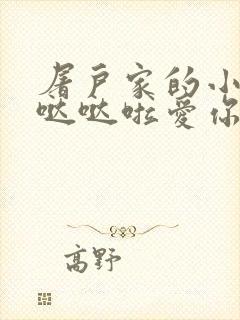 屠戶家的小
哒哒啦爱你
高野